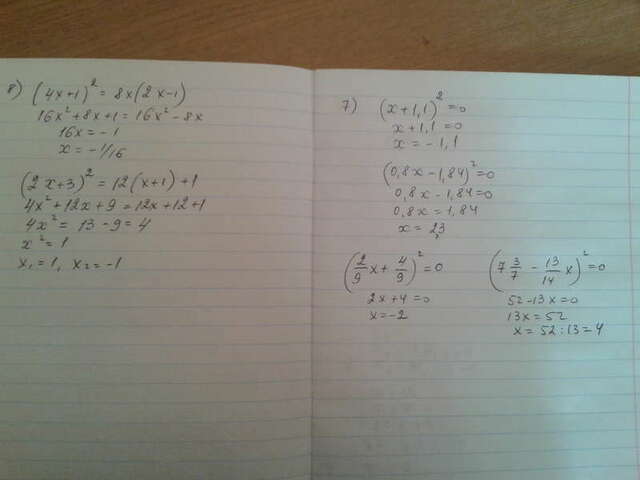 8) (4x+1)² = 8x(2x-1)
16x²+8x+1 = 16x²-8x
16x = -1
x = -1/16
(2x+3)² = 12(x+1)+1
4x²+12x+9 = 12x+12+1
4x² = 13-9 = 4
x² = 1
x₁ = 1, x₂ = -1
7) (x+1,1)² = 0
x+1,1 = 0
x = -1,1
(0,8x-1,84)² = 0
0,8x-1,84 = 0
0,8x = 1,84
x = 2,3
(2/9 x + 4/9)² = 0
2x+4 = 0
x = -2
(7 3/7 - 13/14 x)² = 0
52-13x = 0
13x = 52
x = 52:13 = 4